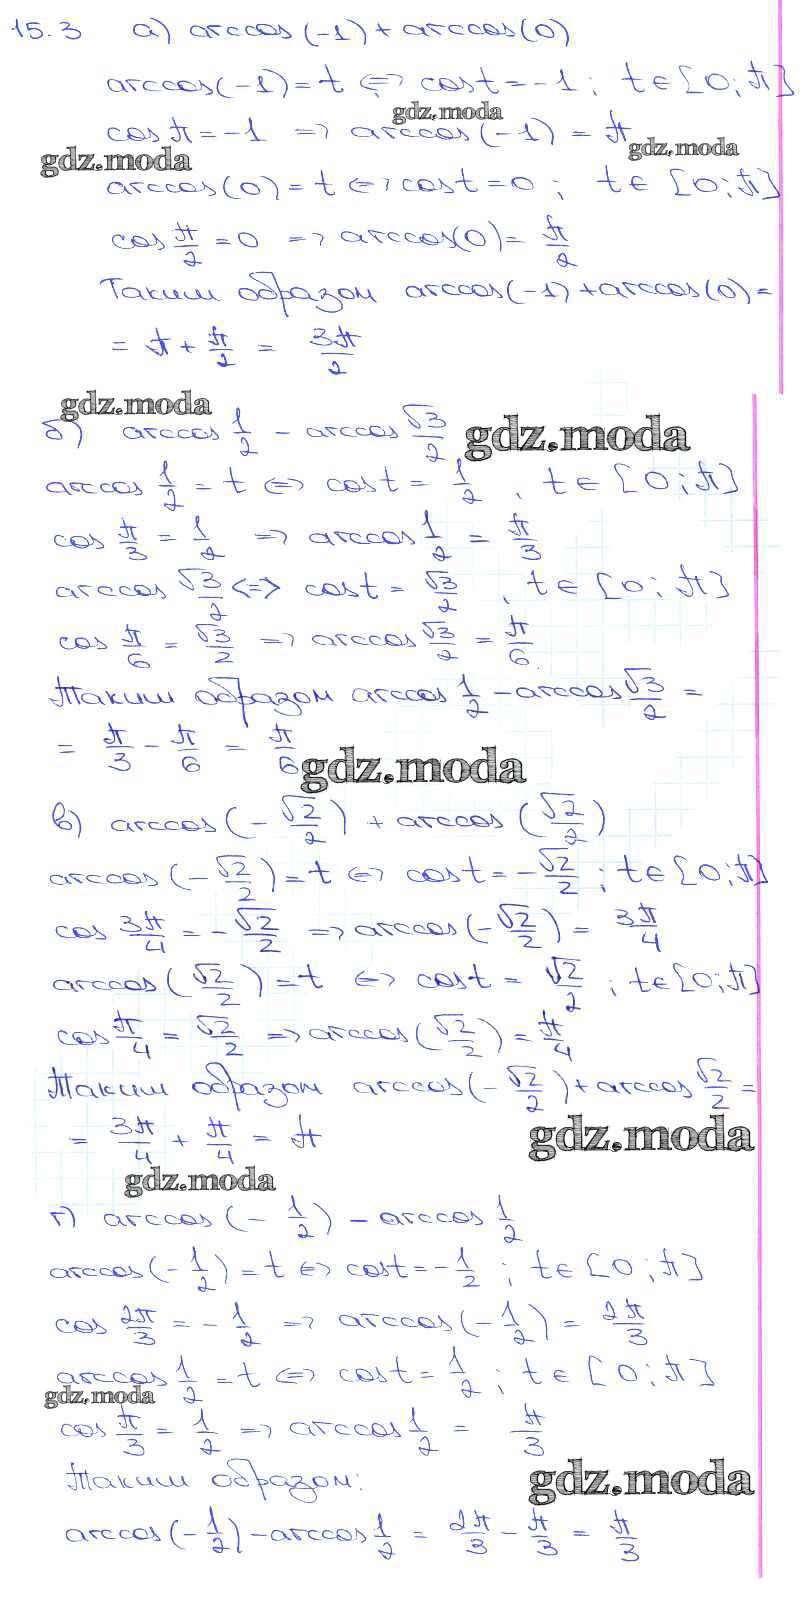 15.3 а) arccos(-1) + arccos(0)
arccos(-1) = t <=> cos t = -1 ; t ∈ [0; π]
gdz.moda
cos π = -1 => arccos(-1) = π
gdz.moda
gdz.moda
arccos(0) = t <=> cos t = 0 ; t ∈ [0; π]
cos π/2 = 0 => arccos(0) = π/2
Таким образом arccos(-1) + arccos(0) =
= π + π/2 = 3π/2
gdz.moda
б) arccos 1/2 - arccos √3/2
gdz.moda
arccos 1/2 = t <=> cos t = 1/2 , t ∈ [0; π]
cos π/3 = 1/2 => arccos 1/2 = π/3
arccos √3/2 <=> cos t = √3/2 , t ∈ [0; π]
cos π/6 = √3/2 => arccos √3/2 = π/6.
Таким образом arccos 1/2 - arccos √3/2 =
= π/3 - π/6 = π/6
gdz.moda
в) arccos(-√2/2) + arccos(√2/2)
arccos(-√2/2) = t <=> cos t = -√2/2 ; t ∈ [0; π]
cos 3π/4 = -√2/2 => arccos(-√2/2) = 3π/4
arccos(√2/2) = t <=> cos t = √2/2 ; t ∈ [0; π]
cos π/4 = √2/2 => arccos(√2/2) = π/4
Таким образом arccos(-√2/2) + arccos √2/2 =
= 3π/4 + π/4 = π
gdz.moda
gdz.moda
г) arccos(-1/2) - arccos 1/2
arccos(-1/2) = t <=> cos t = -1/2 ; t ∈ [0; π]
cos 2π/3 = -1/2 => arccos(-1/2) = 2π/3
arccos 1/2 = t <=> cos t = 1/2 ; t ∈ [0; π]
gdz.moda
cos π/3 = 1/2 => arccos 1/2 = π/3
Таким образом:
gdz.moda
arccos(-1/2) - arccos 1/2 = 2π/3 - π/3 = π/3